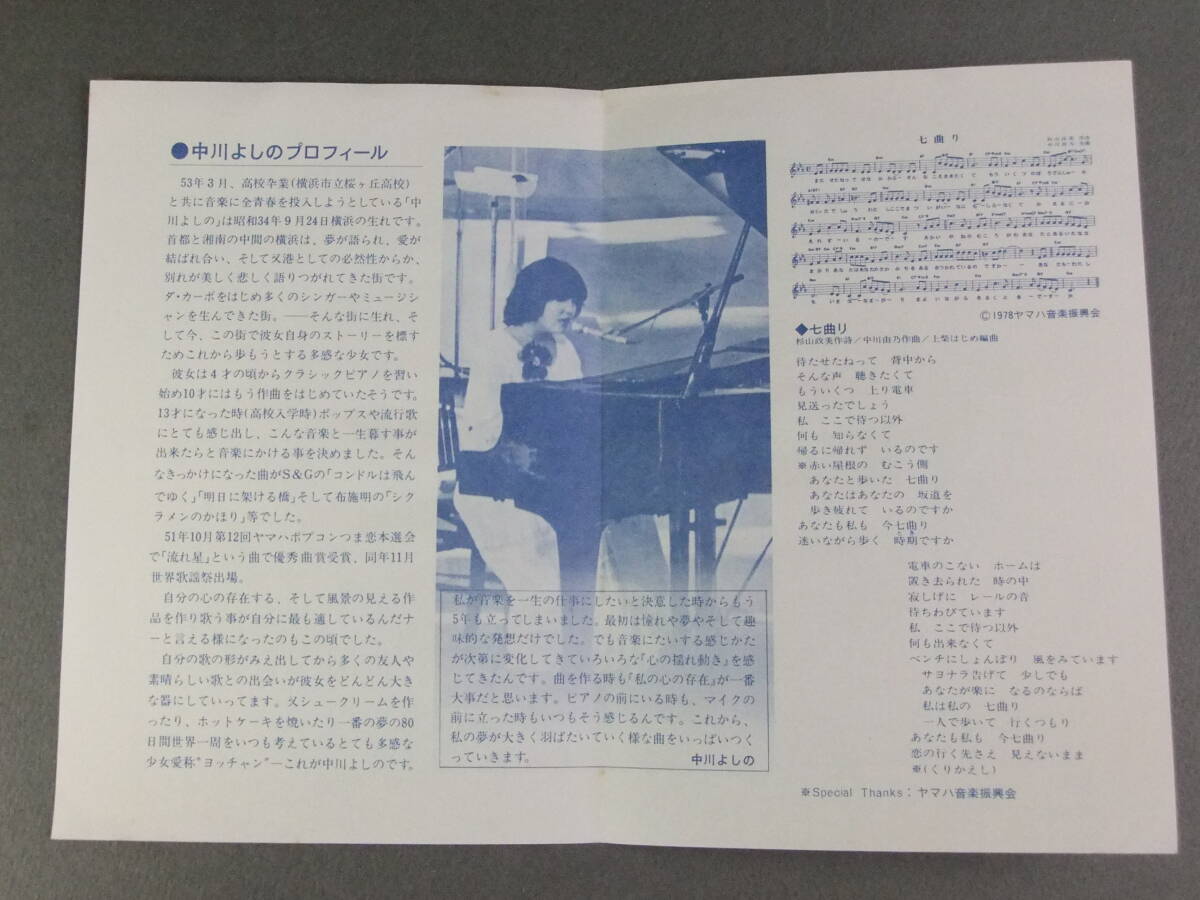 ●中川よしのプロフィール
53年3月、高校卒業(横浜市立桜ヶ丘高校)
と共に音楽に全青春を投入しようとしている「中
川よしの」は昭和34年9月24日横浜の生れです。
首都と湘南の中間の横浜は、夢が語られ、愛が
結ばれ合い、そして又港としての必然性からか、
別れが美しく悲しく語りつがれてきた街です。
ダ・カーポをはじめ多くのシンガーやミュージシ
ャンを生んできた街。――そんな街に生れ、そ
して今、この街で彼女自身のストーリーを標す
ためこれから歩もうとする多感な少女です。
彼女は4才の頃からクラシックピアノを習い
始め10才にはもう作曲をはじめていたそうです。
13才になった時(高校入学時)ポップスや流行歌
にとても感じ出し、こんな音楽と一生暮す事が
出来たらと音楽にかける事を決めました。そん
なきっかけになった曲がS&Gの「コンドルは飛ん
でゆく」「明日に架ける橋」そして布施明の「シク
ラメンのかほり」等でした。
51年10月第12回ヤマハポプコンつま恋本選会
で「流れ星」という曲で優秀曲賞受賞、同年11月
世界歌謡祭出場。
自分の心の存在する、そして風景の見える作
品を作り歌う事が自分に最も適しているんだナ
ーと言える様になったのもこの頃でした。
自分の歌の形がみえ出してから多くの友人や
素晴らしい歌との出会いが彼女をどんどん大き
な器にしていってます。又シュークリームを作
ったり、ホットケーキを焼いたり一番の夢の80
日間世界一周をいつも考えているとても多感な
少女愛称"ヨッチャン"―これが中川よしのです。
私が音楽を一生の仕事にしたいと決意した時からもう
5年も立ってしまいました。最初は憧れや夢やそして趣
味的な発想だけでした。でも音楽にたいする感じかた
が次第に変化してきていろいろな「心の揺れ動き」を感
じてきたんです。曲を作る時も「私の心の存在」が一番
大事だと思います。ピアノの前にいる時も、マイクの
前に立った時もいつもそう感じるんです。これから、
私の夢が大きく羽ばたいていく様な曲をいっぱいつく
っていきます。
中川よしの
七曲り
©1978ヤマハ音楽振興会
◆七曲り
杉山政美作詩/中川由乃作曲/上柴はじめ編曲
待たせたねって 背中から
そんな声 聴きたくて
もういくつ 上り電車
見送ったでしょう
私 ここで待つ以外
何も 知らなくて
帰るに帰れず いるのです
※赤い屋根の むこう側
あなたと歩いた 七曲り
あなたはあなたの 坂道を
歩き疲れて いるのですか
あなたも私も 今七曲り
迷いながら歩く 時期ですか
電車のこない ホームは
置き去られた 時の中
寂しげに レールの音
待ちわびています
私 ここで待つ以外
何も出来なくて
ベンチにしょんぼり 風をみています
サヨナラ告げて 少しでも
あなたが楽に なるのならば
私は私の 七曲り
一人で歩いて 行くつもり
あなたも私も 今七曲り
恋の行く先さえ 見えないまま
※(くりかえし)
※Special Thanks:ヤマハ音楽振興会